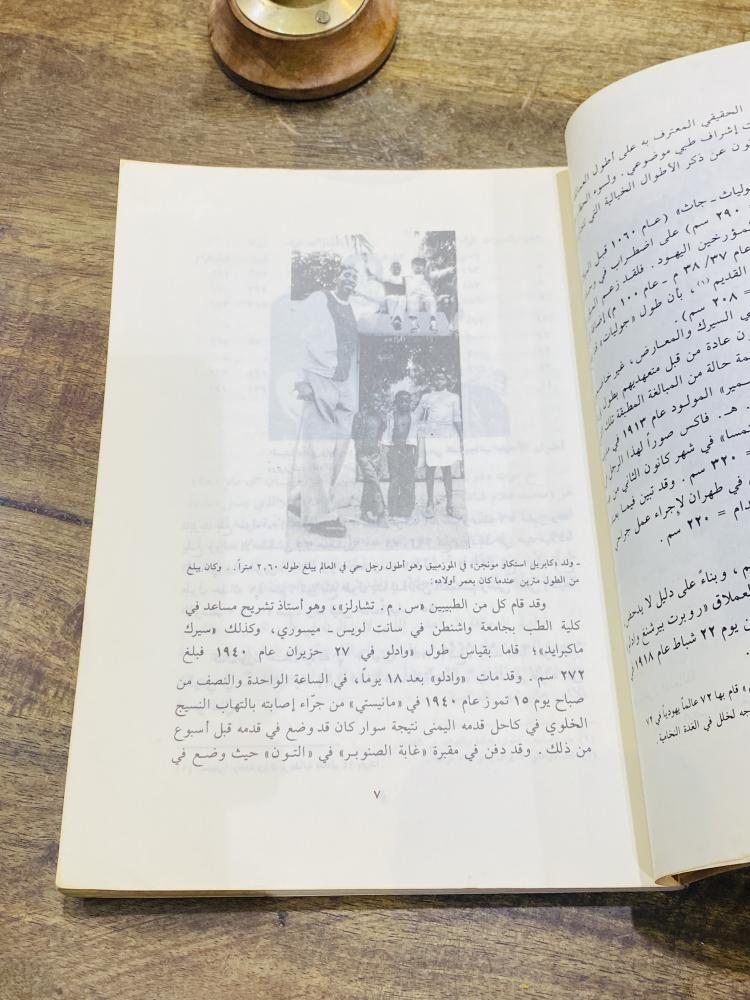 الحقيقي المعترف به على أطول
إشراف طبي موضوعي. ولسوء
عن ذكر الأطوال الخيالية التي
جوليات ـ جاث» (عـام ١٠٦٠ قبل
٢٩٠ سم) على اضطراب في
المؤرخين اليهـود. فلقـد زعـم
عام ٣٧/ ٣٨ م ـ عام ١٠٠ م)
القديم (١)، بأن طول «جوليات»
= ٢٠٨ سم).
في السيرك والمعارض، غير
عادة من قبل متعهديهم بطول
حالة من المبالغة المطبقة تلك
المولـود عام ١٩١٣ في
هـ. فاكس صوراً لهذا الرجل
في شهر كانون الثاني من
= ٣٢٠ سم. وقد تبين فيما بعد
في طهران لإجراء عمل جراحي
= ٢٢٠ سم.
م، وبناءً على دليل لا يدحض
العملاق «روبرت بيرشنغ وادلو
يوم ٢٢ شباط عام ١٩١٨ في
قام بها ٧٢ عالماً يهودياً في ٧٢
لخلل في الغدة النخامية.
ـ ولد «كابريل استكاو مونجن» في الموزمبيق وهو أطول رجل حي في العالم يبلغ طوله ٢,٠٦٠ متراً. . وكان يبلغ
من الطول مترين عندما كان بعمر أولاده:
وقد قام كل من الطبيبين «س. م. تشارلز»، وهو أستاذ تشريح مساعد في
كلية الطب بجامعة واشنطن في سانت لويس ـ ميسوري، وكذلك «سيرك
ماكبرايد»؛ قاما بقياس طول «وادلو في ٢٧ حزيران عام ١٩٤٠ فبلغ
٢٧٢ سم. وقد مات «وادلو» بعد ١٨ يوماً، في الساعة الواحدة والنصف من
صباح يوم ١٥ تموز عام ١٩٤٠ في «مانيستي» من جرّاء إصابته بالتهاب النسيج
الخلوي في كاحل قدمه اليمنى نتيجة سوار كان قد وضع في قدمه قبل أسبوع
من ذلك. وقد دفن في مقبرة «غابة الصنوبـر» في «التـون» حيث وضع في
٧